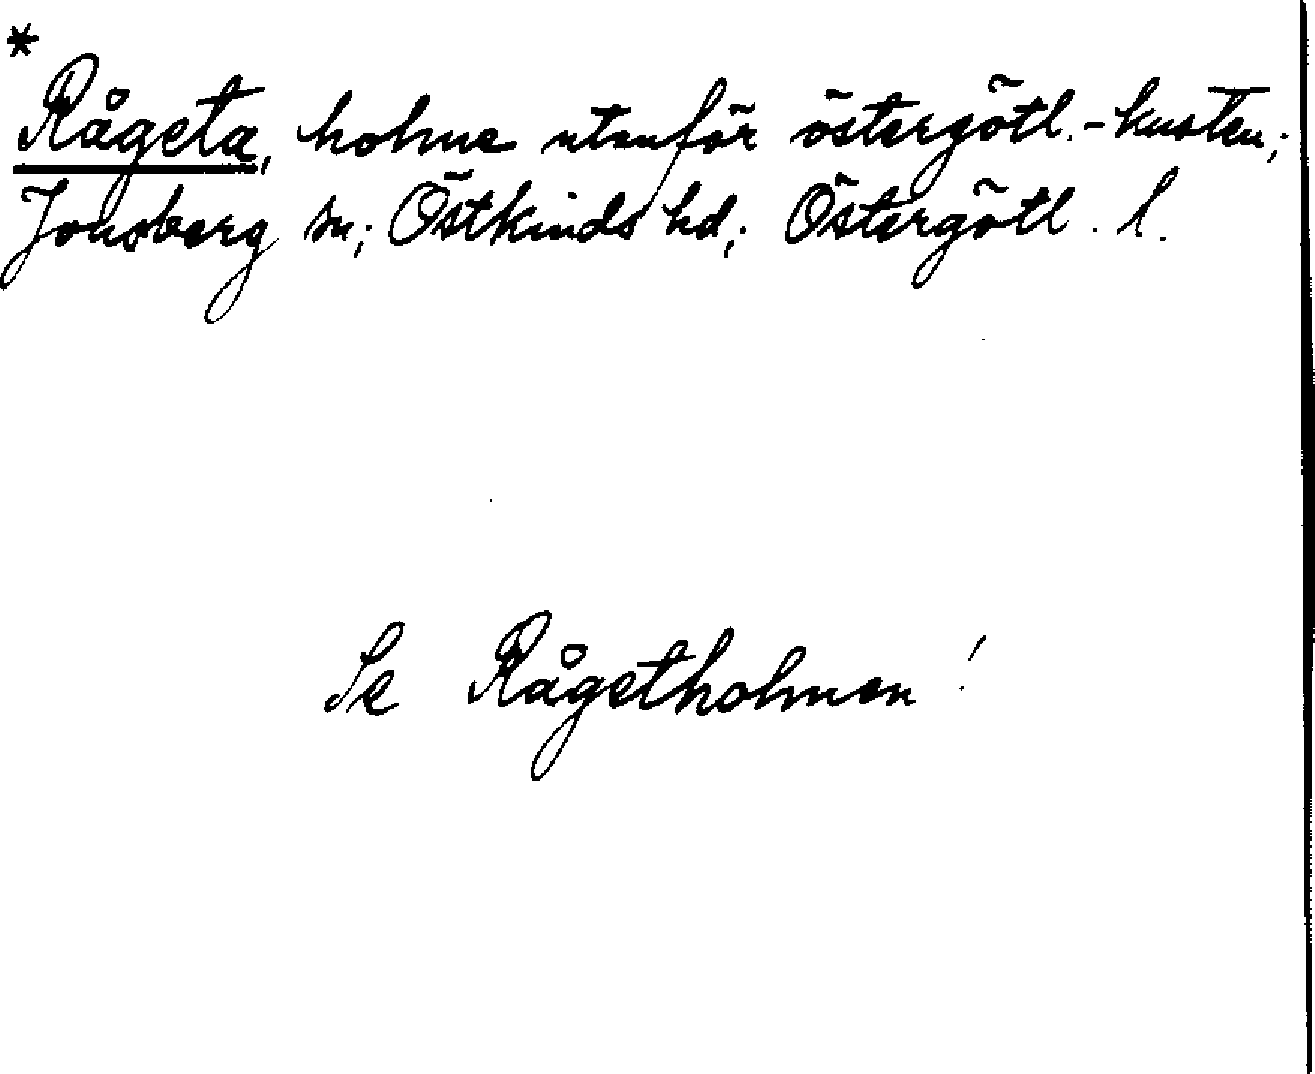 *
Rågeta, holme utanför östergötl.-kusten;
Jonsberg sn; Östkinds hd; Östergötl. l.
Se Rågetholmen!